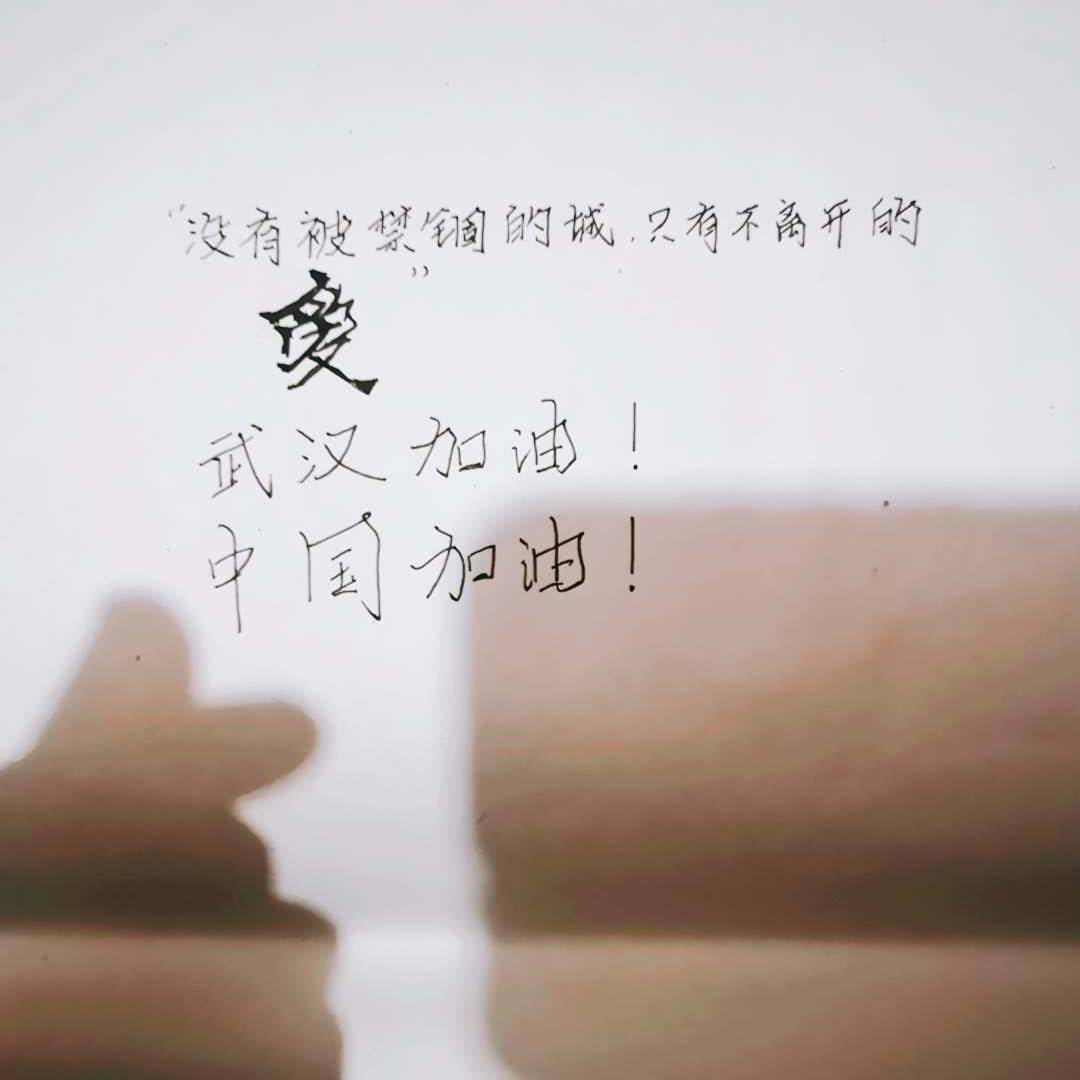 “没有被禁锢的城,只有不离开的
愛”
武汉加油!
中国加油!